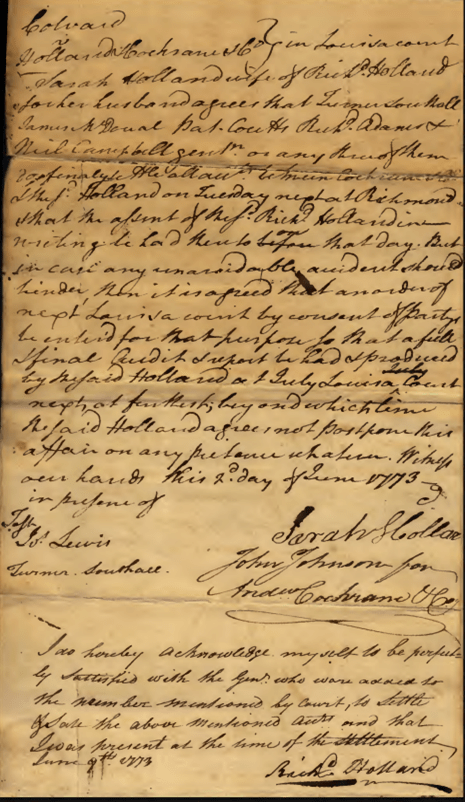 Colvard
vs
Holland & Cochrane & Co } in Louisa court
Sarah Holland wife of Richd. Holland
for her husband agrees that Turner Southall
James McDoual Pat. Coutts Richd. Adams &
Neil Campbell gentn. or any three of them
finaly between Cochrane & Co
& the sd. Holland on Tuesday next at Richmond
& that the assent of the sd. Richd. Holland in
writing be had thereto before or on that day. But
in case any unavoidable accident should
hinder, then it is agreed that an order of
next Louisa court by consent of party
be enterd for that purpose so that a full
& final Audit & report be had & produced
by the said Holland at July Louisa July Court
next, at furthest, beyond which time
the said Holland agrees not Postpone this
affair on any pretence whatever. Witness
our hands this 2d. day of June 1773
in presene of
Test
Js. Lewis
Turner Southall
Sarah Hollan
John Johnson for
Andw. Cochrane & Co
I do hereby acknowledge myself to be perfect-
ly Satisfied with the Gen. who were added to
the number mentioned by Court, to Settle
& State the above mentioned Accts and that
I was present at the time of the Settlement
June 9th 1773
Richd Holland